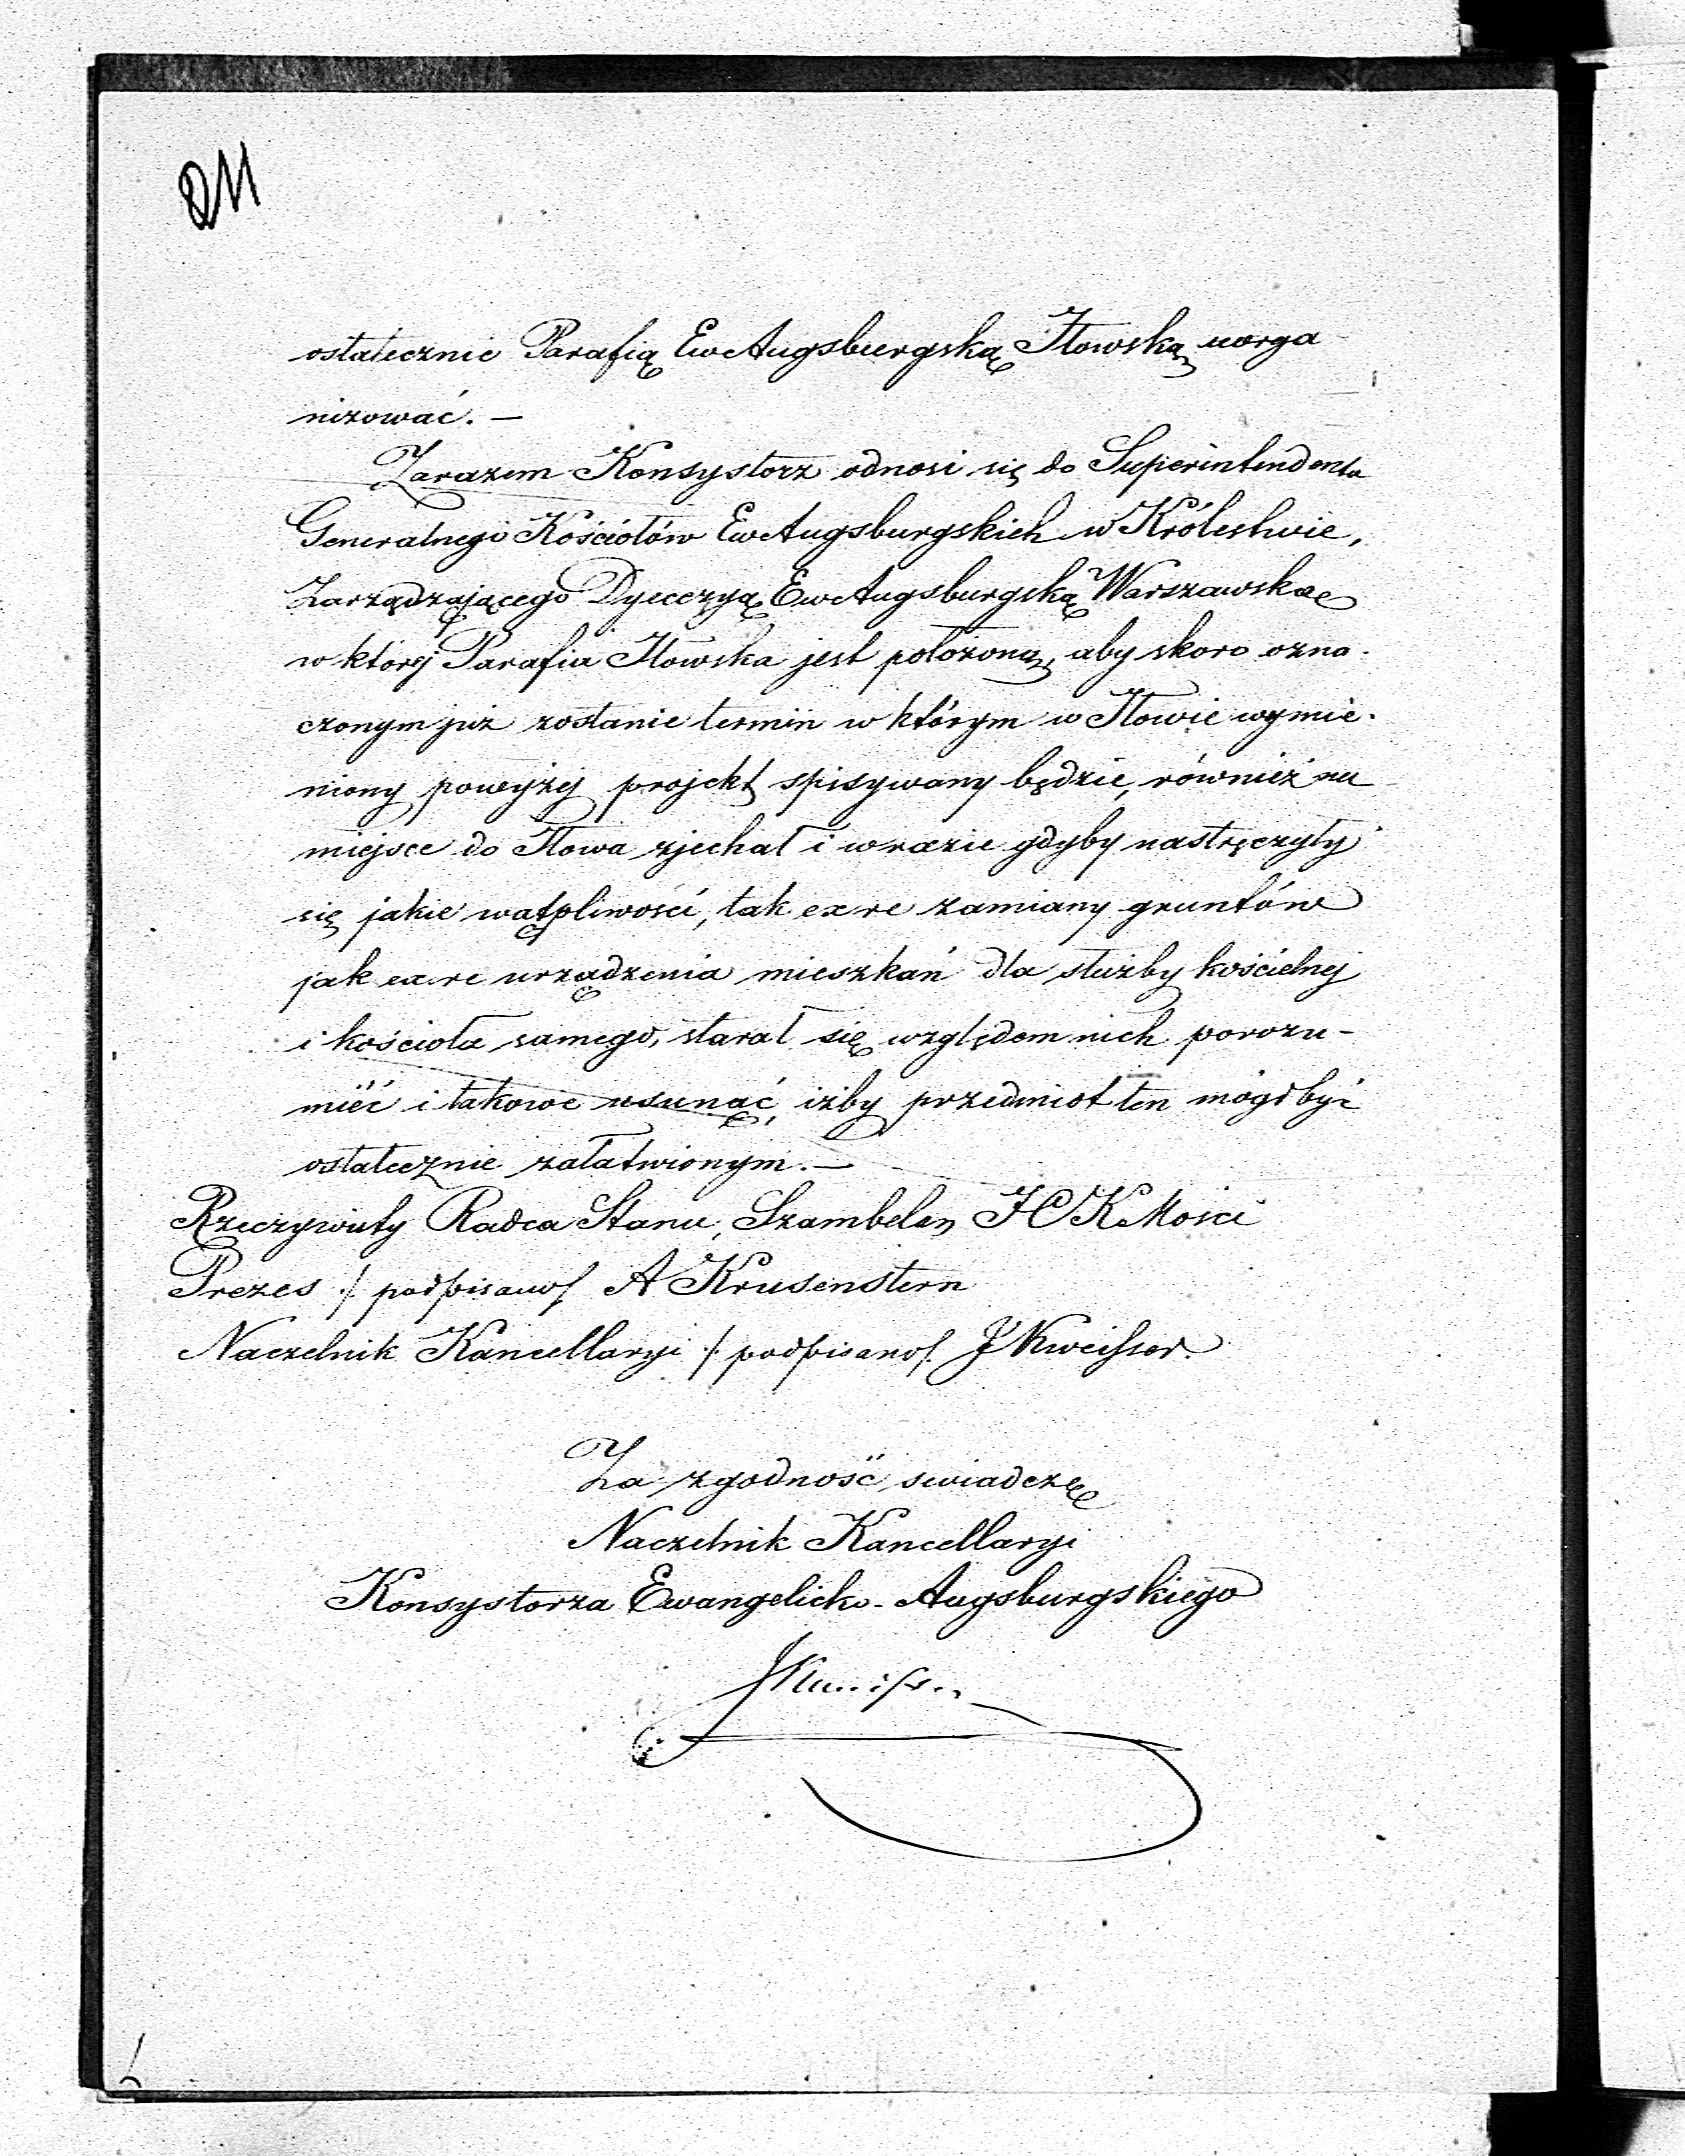 ostatecznie Parafią EwAugsburgską Iłowską uorga
nizować. —
Zarazem Konsystorz odnosi się do Superintendenta
Generalnego Kościołów EwAugsburgskich w Królestwie,
Zarządzającego Dyecezyą EwAugsburgską Warszawską
w której Parafia Iłowska jest położoną, aby skoro ozna-
czonym już zostanie termin w którym w Iłowie wymie-
niony powyżej projekt spisywany będzie, również na
miejsce do Iłowa zjechał i w razie gdyby nastręczyły
się jakie wątpliwości, tak ex re zamiany gruntów
jak ex re urządzenia mieszkań dla służby kościelnej
i kościoła samego, starał się względem nich porozu-
mieć i takowe usunąć, iżby przedmiot ten mógł być
ostatecznie załatwionym. —
Rzeczywisty Radca Stanu, Szambelan JCKMości
Prezes /: podpisano/ A Krusenstern
Naczelnik Kancellaryi /: podpisano/.
Za zgodność swiadczę
Naczelnik Kancellaryi
Konsystorza Ewangelicko-Augsburgskiego